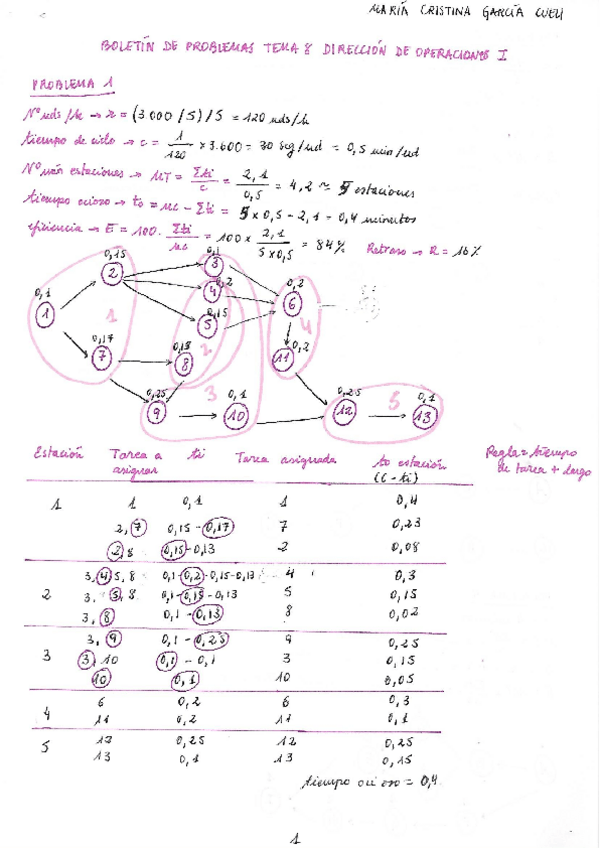 MARÍA CRISTINA GARCÍA CUELI
BOLETÍN DE PROBLEMAS TEMA 8 DIRECCIÓN DE OPERACIONES I
PROBLEMA 1
Nº uds/h → r = (3.000/5)/5 = 120 uds/h
tiempo de ciclo → c = 1/120 x 3.600 = 30 seg/ud = 0,5 min/ud
Nº mín estaciones → MT = Σti/c = 2,1/0,5 = 4,2 ≈ 5 estaciones
tiempo ocioso → to = nc - Σti = 5 x 0,5 - 2,1 = 0,4 minutos
eficiencia → E = 100. Σti/nc = 100 x 2,1/5x0,5 = 84% Retraso → R = 16%
0,1 1
0,15 2
0,17 7
1
0,1 3
0,2 4
0,15 5
0,13 8
2
0,25 9
0,1 10
3
0,2 6
11 0,2
4
0,25 12
0,1 13
5
Estación Tarea a asignar ti Tarea asignada to estación (c - ti)
Regla = tiempo de tarea + largo
1 1 0,1 1 0,4
2, 7 0,15 - 0,17 7 0,23
2, 8 0,15 - 0,13 2 0,08
2 3, 4, 5, 8 0,1 - 0,2 - 0,15 - 0,13 4 0,3
3, 5, 8 0,1 - 0,15 - 0,13 5 0,15
3, 8 0,1 - 0,13 8 0,02
3 3, 9 0,1 - 0,25 9 0,25
3, 10 0,1 - 0,1 3 0,15
10 0,1 10 0,05
4 6 0,2 6 0,3
11 0,2 11 0,1
5 12 0,25 12 0,25
13 0,1 13 0,15
tiempo ocioso = 0,4
1